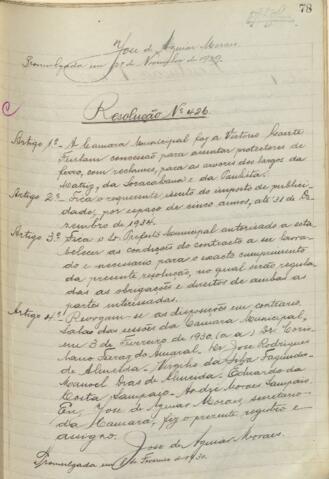 78
José de Aguiar Moraes.
Promulgada em de Novembro de 1929.
Resolução Nº 426
Artigo 1º - A Camara Municipal faz a Victorio Conte
Furlam concessão para assentar protectores de
ferro, com reclames, para as arvores dos largos da
Matriz, da Sorocabana e da Paulista.
Artigo 2º - Fica o requerente isento do imposto de publici-
dade, por espaço de cinco annos, até 31 de De-
zembro de 1934.
Artigo 3º - Fica o Sr. Prefeito Municipal autorizado a esta-
belecer as condições do contracto a ser lavra-
do e necessario para o exacto cumprimento
da presente resolução, no qual serão regula-
das as obrigações e direitos de ambas as
partes interessadas.
Artigo 4º - Revogam-se as disposições em contrario.
Salão das sessões da Camara Municipal,
em 3 de Fevereiro de 1930 (a a) Dr. Coru-
bario Ferraz do Amaral - José Rodrigues
de Almeida - Virgilio da Silva Fagundes -
Manoel Dias de Almeida - Eduardo da
Costa Sampaio - André Moraes Sampaio.
Eu, José de Aguiar Moraes, secretario
da Camara, fiz o presente registro e
assigno.
José de Aguiar Moraes.
Promulgada em de Fevereiro de 1930.